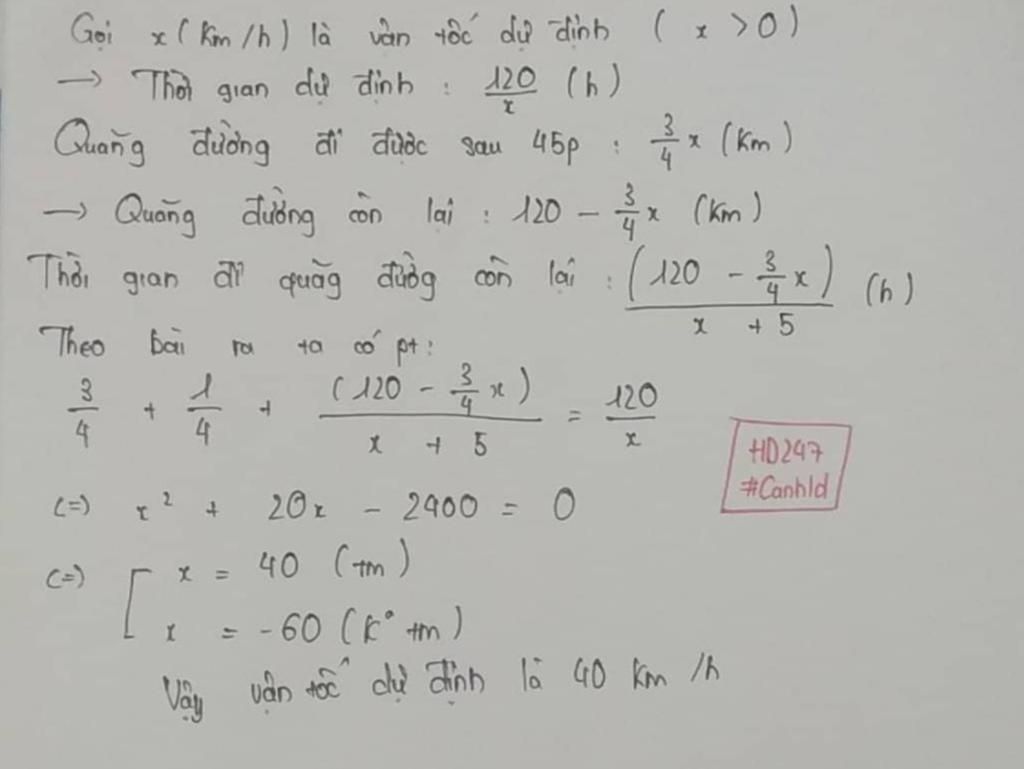 Gọi x (Km/h) là vận tốc dự định ( x > 0 )
→ Thời gian dự định : 120/x (h)
Quãng đường đi được sau 45p : 3/4 x (Km)
→ Quãng đường còn lại : 120 - 3/4 x (Km)
Thời gian đi quãg đườg còn lại : (120 - 3/4 x) / x + 5 (h)
Theo bài ra ta có pt:
3/4 + 1/4 + (120 - 3/4 x) / x + 5 = 120/x
HD247
#Canhld
(=) x² + 20x - 2400 = 0
(=) [ x = 40 (tm)
x = -60 (k° tm)
Vậy vận tốc dự định là 40 km/h